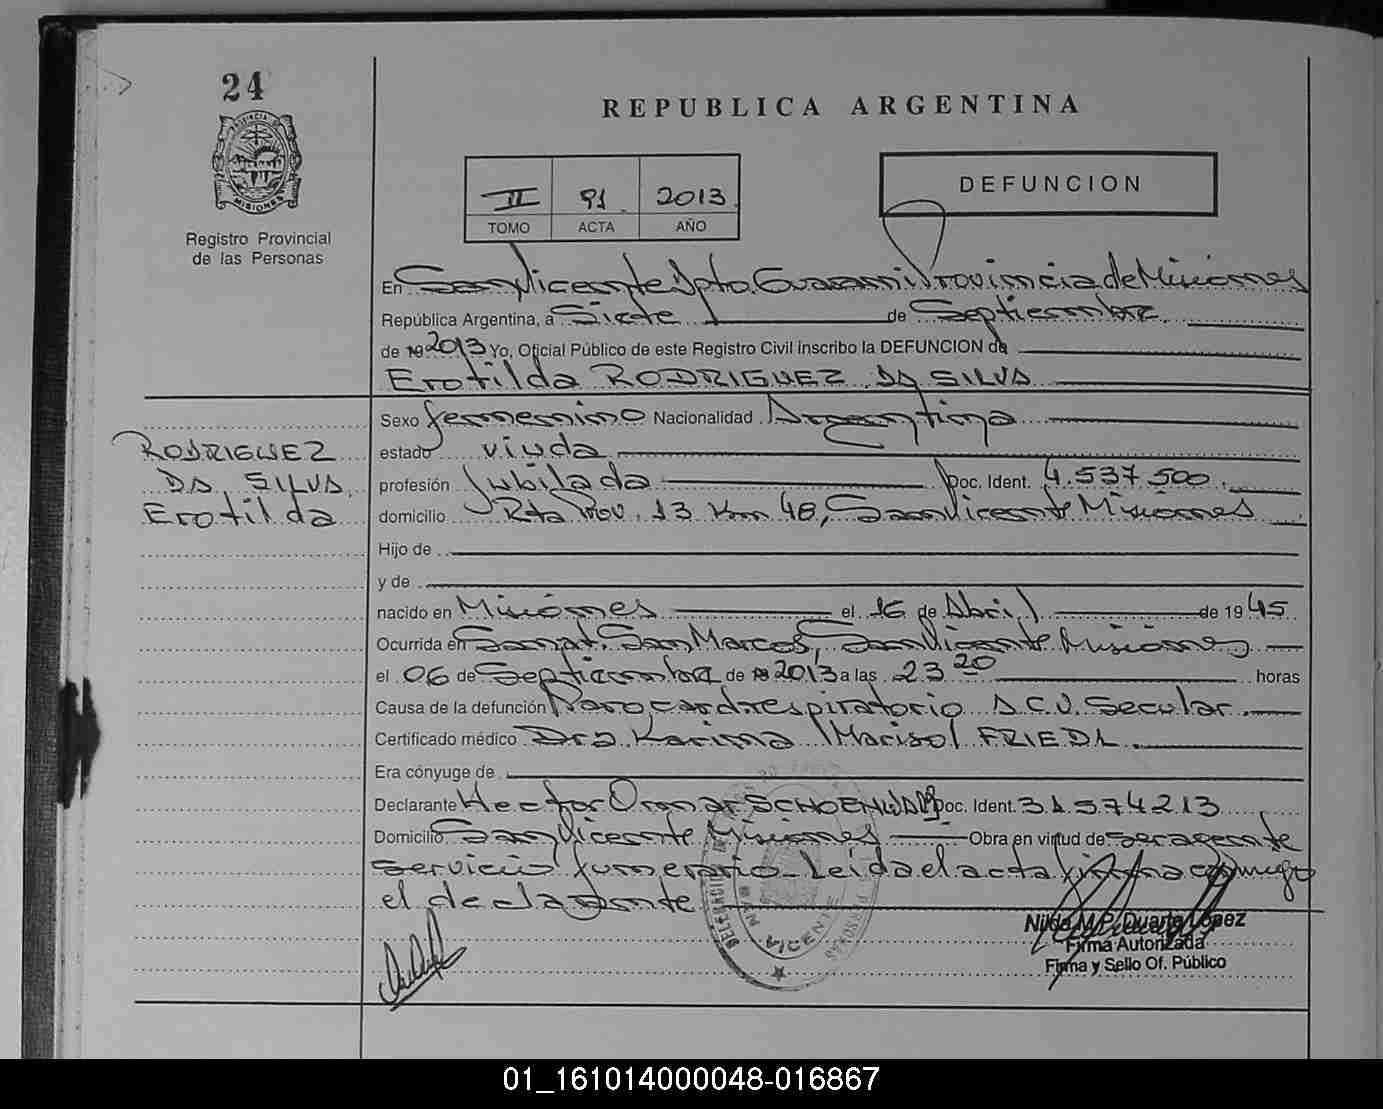 24
REPUBLICA ARGENTINA
PROVINCIA DE
MISIONES
Registro Provincial
de las Personas
II 91 2013
TOMO ACTA AÑO
DEFUNCION
En San Vicente Dpto. Guaraní Provincia de Misiones
República Argentina, a Siete de Septiembre
de 19 2013 Yo, Oficial Público de este Registro Civil inscribo la DEFUNCION de
Erotilda RODRIGUEZ DA SILVA
Sexo femenino Nacionalidad Argentina
RODRIGUEZ
DA SILVA
Erotilda
estado viuda
profesión Jubilada Doc. Ident. 4.537.500
domicilio Rta Prov. 13 Km 48, San Vicente Misiones
Hijo de
y de
nacido en Misiones el 16 de Abril de 1945
Ocurrida en Sanat. San Marcos, San Vicente Misiones
el 06 de Septiembre de 19 2013 a las 23 20 horas
Causa de la defunción Paro cardirespiratorio A.C.V. Secular.
Certificado médico Dra Karina Marisol FRIEDL.
Era cónyuge de
Declarante Hector Omar Doc. Ident. 31574213
Domicilio San Vicente Misiones Obra en virtud de ser agente
servicio funerario_ Leída el acta firma conmigo
el declarante
SAN VICENTE
Nilda M.P. Duarte Lopez
Firma Autorizada
Firma y Sello Of. Público
01_161014000048-016867